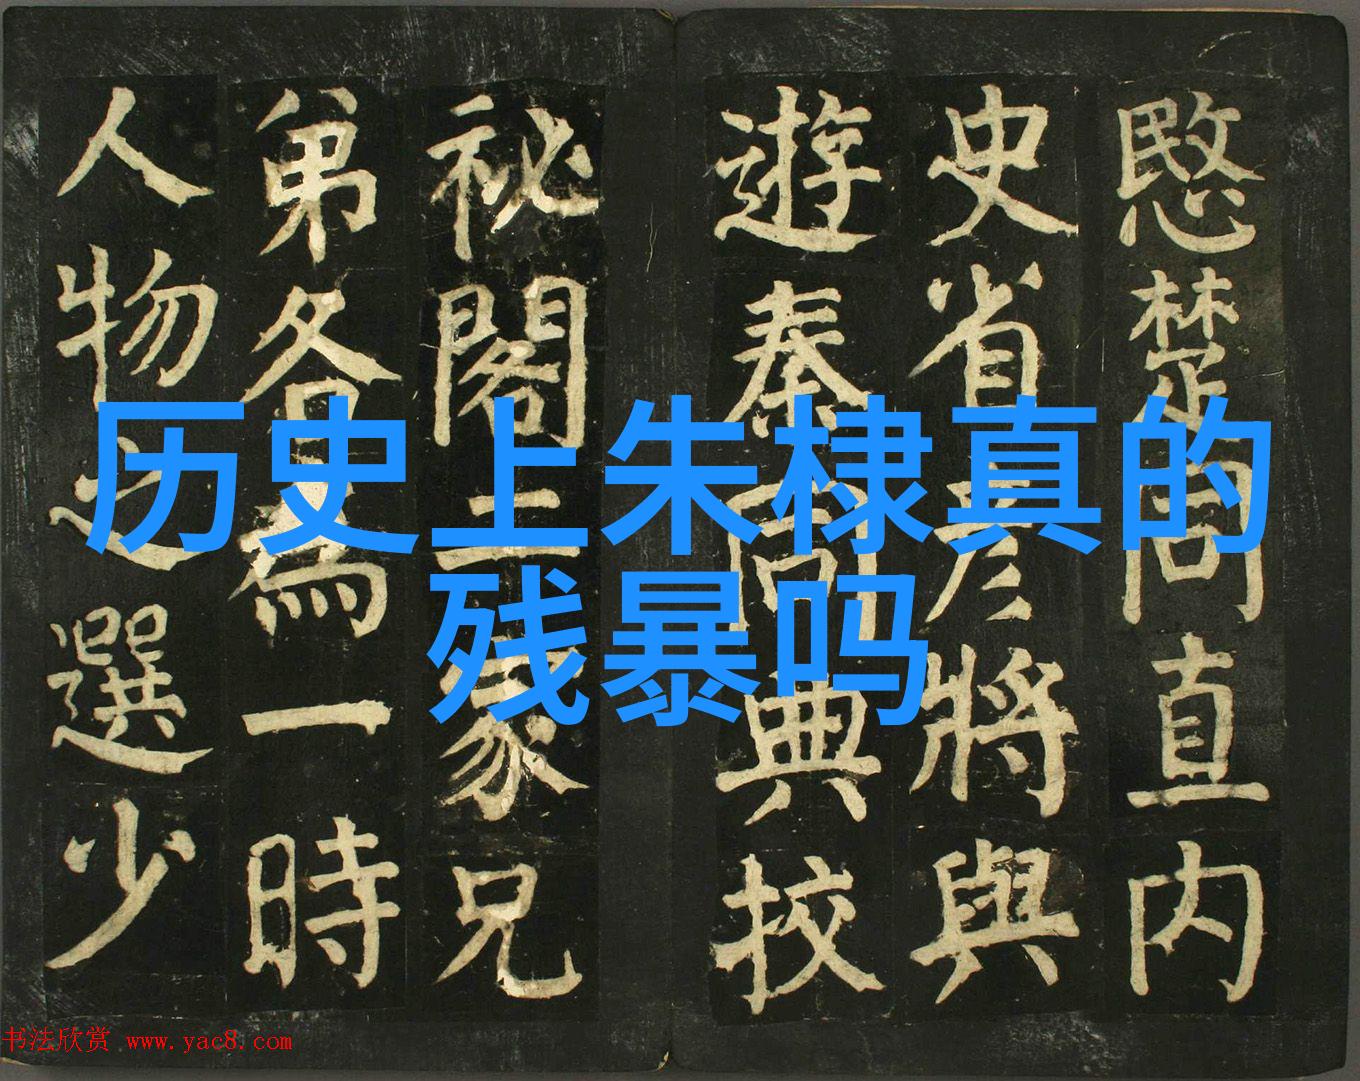 历史上朱棣真的
残暴吗
愍楚同直内
史省彦將與
遊秦同典校
祕閣二家兄
弟各為一時
人物之選少
书法欣赏 www.yac8.com